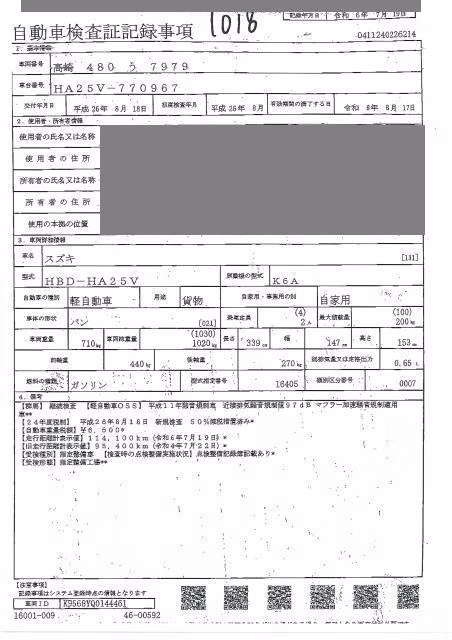 1018
記録年月日 令和 6年 7月 19日
自動車検査証記録事項
0411240226214
1．基本情報
車両番号 高崎 480 う 7979
車台番号 HA25V-770967
交付年月日 平成 26年 8月 18日 初度検査年月 平成 26年 8月 有効期間の満了する日 令和 8年 8月 17日
2．使用者・所有者情報
使用者の氏名又は名称
使用者の住所
所有者の氏名又は名称
所有者の住所
使用の本拠の位置
3．車両詳細情報
車名 スズキ [131]
型式 HBD-HA25V 原動機の型式 K6A
自動車の種別 軽自動車 用途 貨物 自家用・事業用の別 自家用
車体の形状 バン [021] 乗車定員 (4) 2人 最大積載量 (100) 200kg
車両重量 710kg 車両総重量 (1030) 1020kg 長さ 339cm 幅 147cm 高さ 153cm
前軸重 440kg 後軸重 270kg 総排気量又は定格出力 0.65 L
燃料の種類 ガソリン 型式指定番号 16405 類別区分番号 0007
4．備考
【群馬】 継続検査 【軽自動車OSS】 平成11年騒音規制車 近接排気騒音規制値97dB マフラー加速騒音規制適用
車**
【24年度税制】 平成26年8月18日 新規検査 50％減税措置済み*
【自動車重量税額】 ¥6,600*
【走行距離計表示値】 114,100km（令和6年7月19日）*
【旧走行距離計表示値】 95,400km（令和4年7月22日）*
【受検種別】 指定整備車 【検査時の点検整備実施状況】 点検整備記録簿記載あり*
【受検形態】 指定整備工場**
【注意事項】
記録事項はシステム登録時点の情報となります
車両ID K9568YQ0144461
16001-009 46-00592